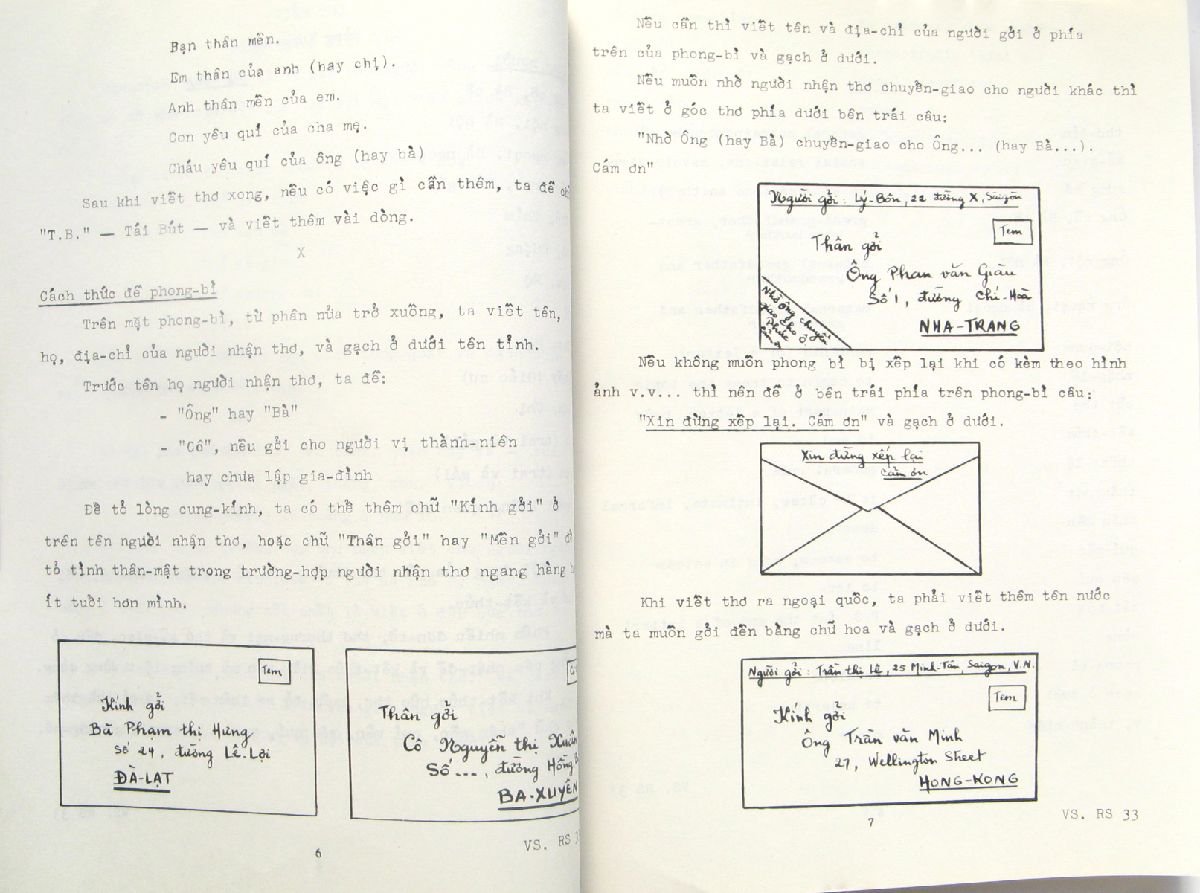 Bạn thân mến.
Em thân của anh (hay chị).
Anh thân mến của em.
Con yêu quí của cha mẹ.
Cháu yêu quí của ông (hay bà)
Sau khi viết thơ xong, nếu có việc gì cần thêm, ta đề
"T.B." — Tái Bút — và viết thêm vài dòng.
X
Cách thức đề phong-bì
Trên mặt phong-bì, từ phân nửa trở xuống, ta viết tên,
họ, địa-chỉ của người nhận thơ, và gạch ở dưới tên tỉnh.
Trước tên họ người nhận thơ, ta đề:
- "Ông" hay "Bà"
- "Cô", nếu gởi cho người vị thành-niên
hay chưa lập gia-đình
Để tỏ lòng cung-kính, ta có thể thêm chữ "Kính gởi" ở
trên tên người nhận thơ, hoặc chữ "Thân gởi" hay "Mến gởi"
tỏ tình thân-mật trong trường-hợp người nhận thơ ngang hàng
ít tuổi hơn mình.
Tem
Kính gởi
Bà Phạm thị Hưng
Số 24, đường Lê-Lợi
ĐÀ-LẠT
Thân gởi
Cô Nguyễn thị Xuân
Số ..., đường Hồng
BA-XUYÊN
6
VS. RS
Nếu cần thì viết tên và địa-chỉ của người gởi ở phía
trên của phong-bì và gạch ở dưới.
Nếu muốn nhờ người nhận thơ chuyển-giao cho người khác thì
ta viết ở góc thơ phía dưới bên trái câu:
"Nhờ Ông (hay Bà) chuyển-giao cho Ông... (hay Bà...).
Cám ơn"
Người gởi : Lý-Bôn, 22 đường X, Saigòn
Tem
Thân gởi
Ông Phan văn Giàu
Số 1, đường Chí-Hoà
NHA-TRANG
Nhờ ông chuyển
giao cho Ô.
Phúc
Cám ơn
Nếu không muốn phong bì bị xếp lại khi có kèm theo hình
ảnh v.v... thì nên đề ở bên trái phía trên phong-bì câu:
"Xin đừng xếp lại. Cám ơn" và gạch ở dưới.
Xin đừng xếp lại
cám ơn
Khi viết thơ ra ngoại quốc, ta phải viết thêm tên nước
mà ta muốn gởi đến bằng chữ hoa và gạch ở dưới.
Người gởi : Trần thị Lệ, 25 Minh-Tân, Saigon, V.N.
Tem
Kính gởi
Ông Trần văn Minh
27, Wellington Street
HONG-KONG
7
VS. RS 33